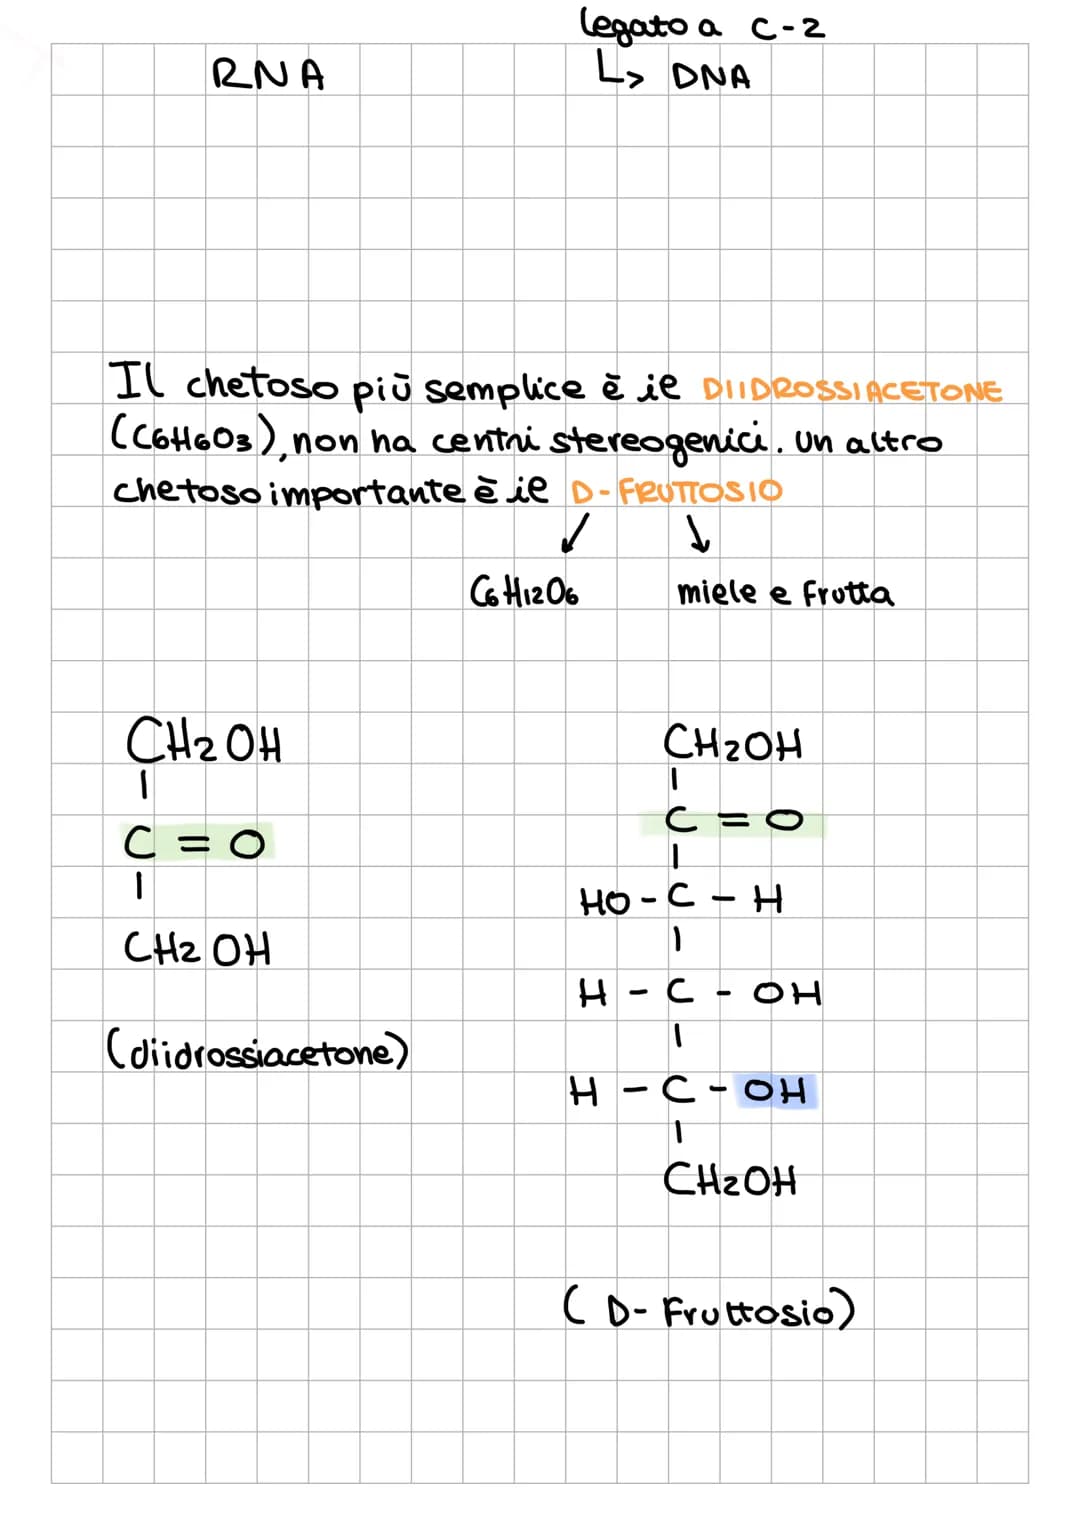 legato a C-2
RNA
↳ DNA
Il chetoso più semplice è il DIIDROSSIACETONE
(C6H6O3), non ha centri stereogenici. Un altro
chetoso importante è il D-FRUTTOSIO
C6H12O6
miele e frutta
CH2OH
|
C = O
|
CH2OH
(diidrossiacetone)
CH2OH
|
C = O
|
HO - C - H
|
H - C - OH
|
H - C - OH
|
CH2OH
(D-Fruttosio)